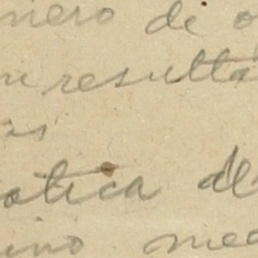 nero di o
n resulta
as
otica de
ino med